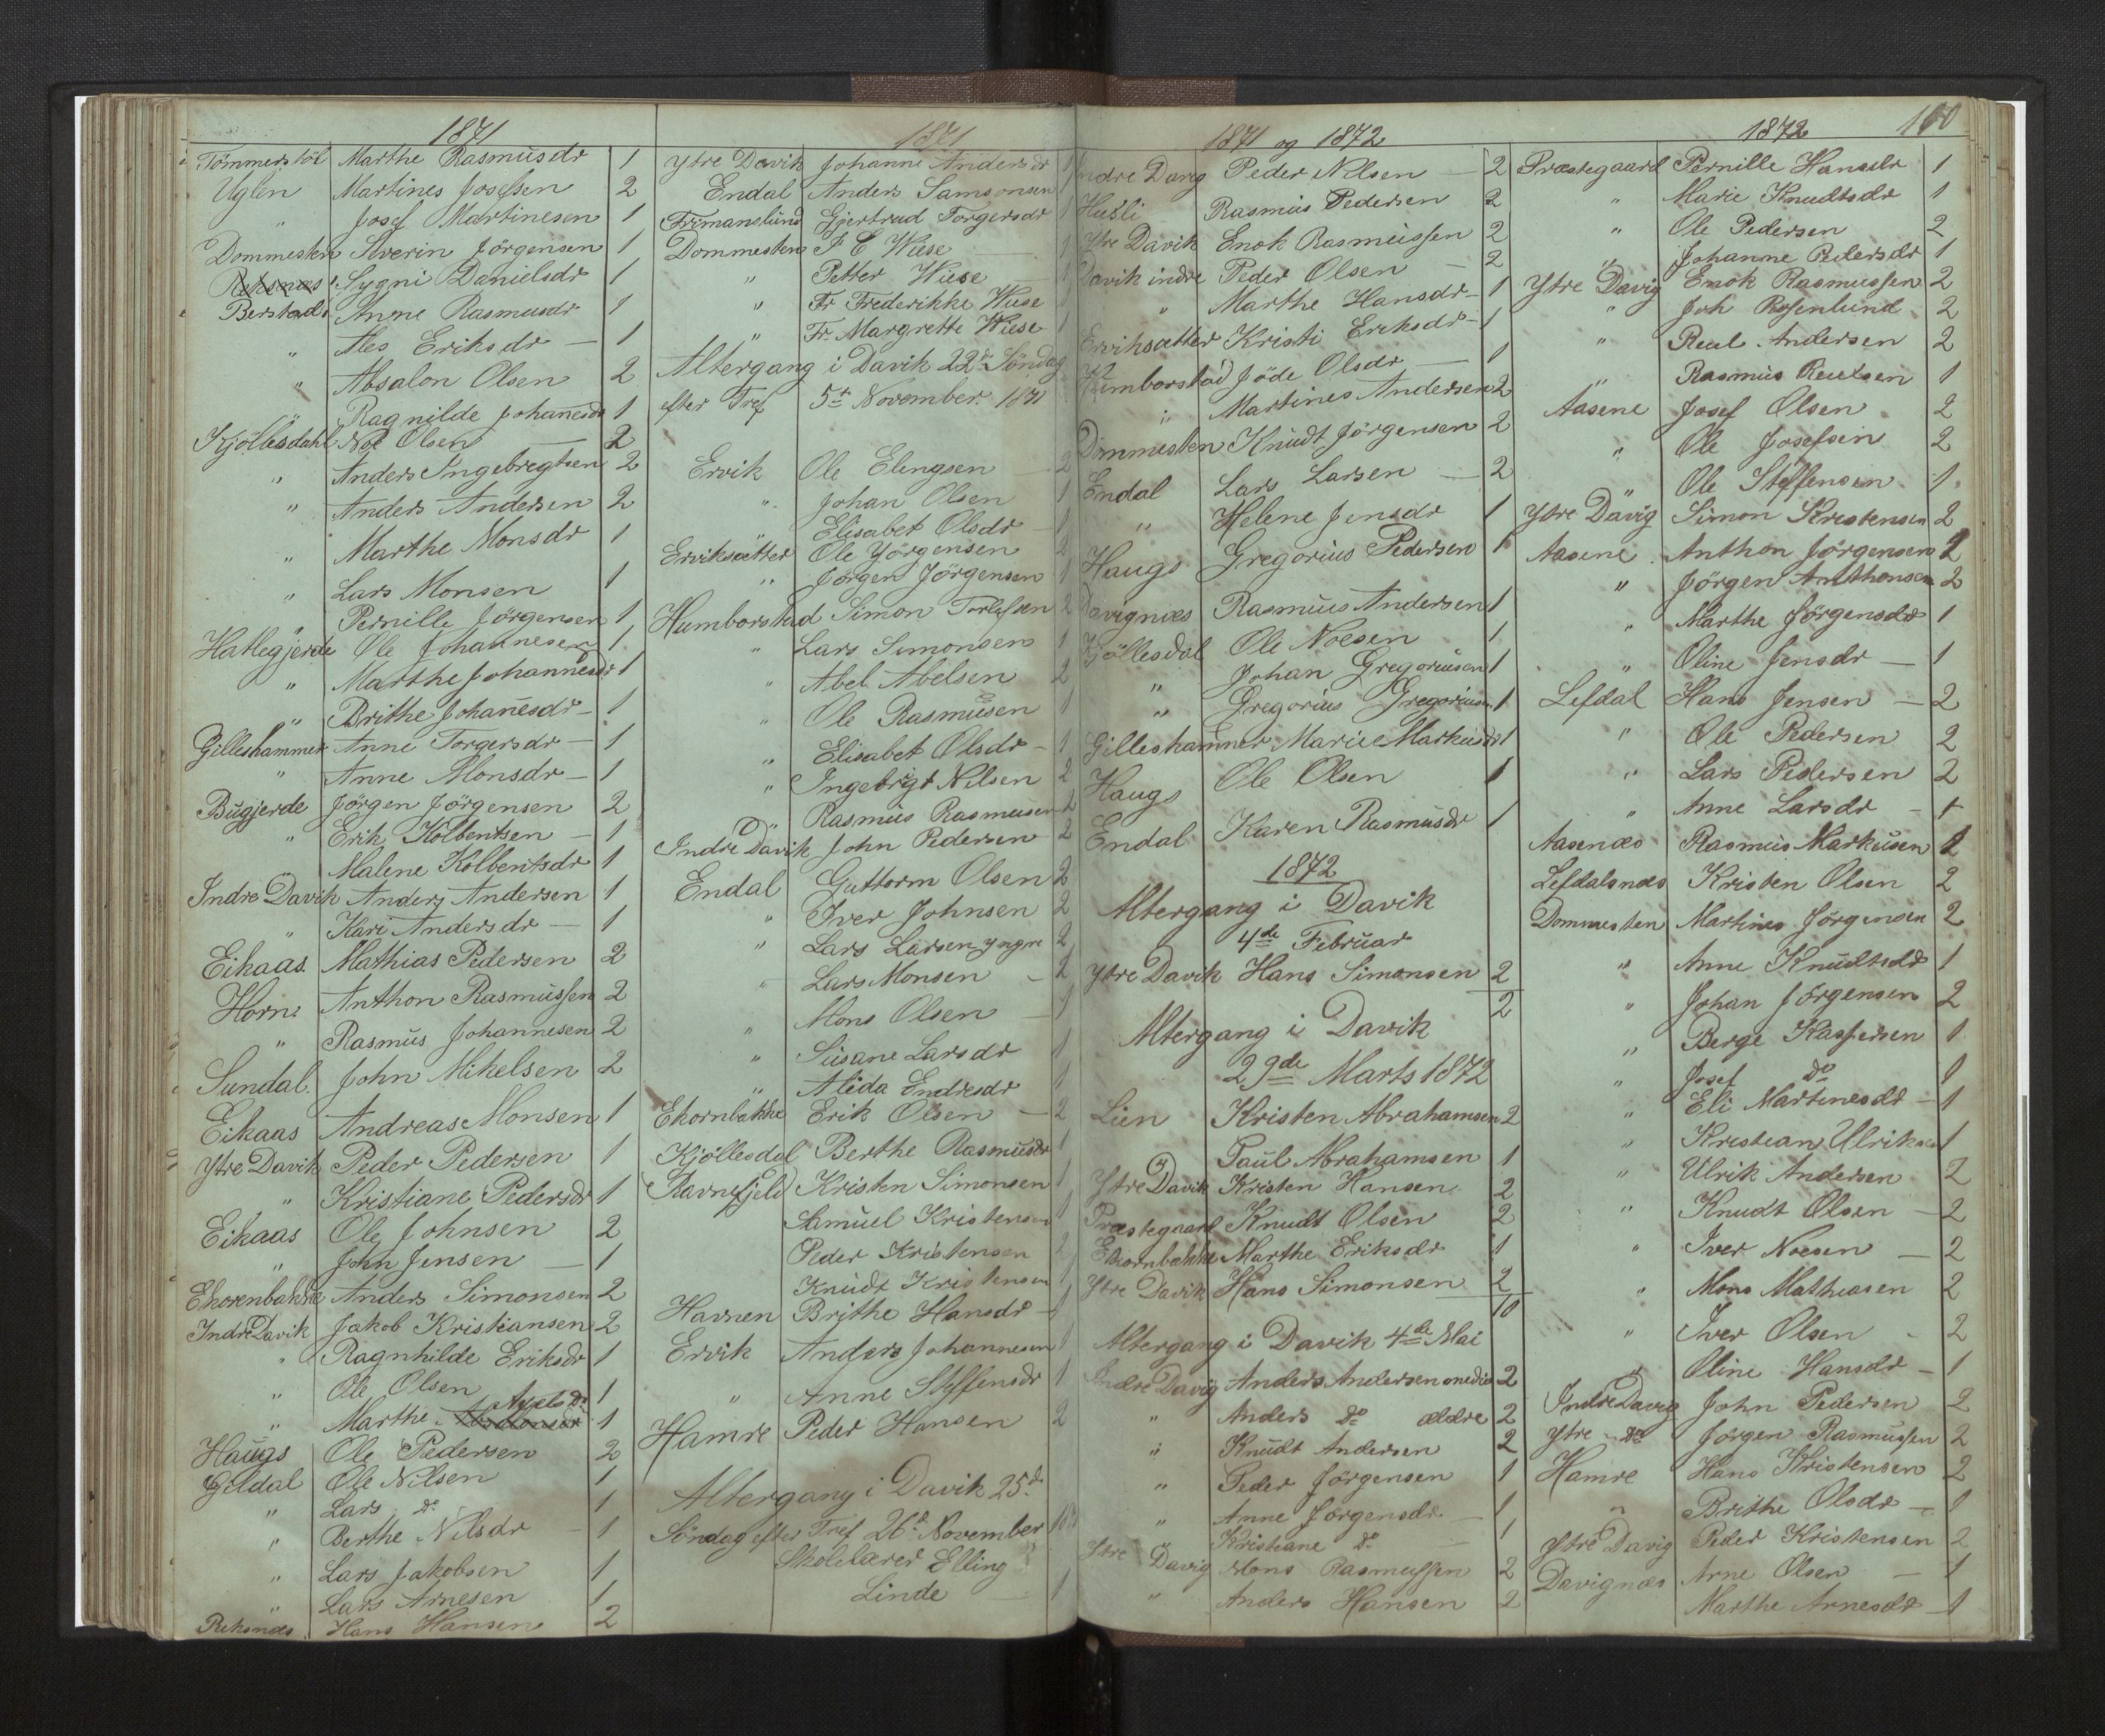 1871
Tömmerstöl Marthe Rasmusdr 1
Uglen Martines Josefsen 2
" Josef Martinesen 1
Dommesten Siverin Jörgensen 1
Reksnæs Sygni Danielsdr 1
Berstad Anne Rasmusdr 1
" Ales Eriksdr — 1
" Absalon Olsen 2
" Ragnilde Johanesdr 1
Kjöllesdahl Noe Olsen — 2
" Anders Ingebregtsen 2
" Anders Andersen 2
" Marthe Monsdr 1
" Lars Monsen 1
" Pernille Jörgensen 1
Hatlegjerde Ole Johannesen 1
" Marthe Johannesdr 1
" Brithe Johanesdr — 1
Gilleshammer Anne Torgersdr — 1
" Anne Monsdr — 1
Bugjerde Jörgen Jörgensen 2
" Erik Kolbentsen — 1
Malene Kolbentsdr 1
Indre Davik Anders Andersen 1
" Kari Andersdr — 1
Eikaas Mathias Pedersen 2
Horn Anthon Rasmussen 2
" Rasmus Johannesen 2
Sundal John Mikelsen 2
Eikaas Andreas Monsen 1
Ytre Davik Peder Pedersen 1
" Kristiane Pedersdr 1
Eikaas Ole Johnsen 2
" John Jensen — 1
Ekorenbakke Anders Simonsen 2
Indre Davik Jakob Kristiansen 2
" Ragnhilde Eriksdr 1
" Ole Olsen 1
" Marthe Axelsdr 1
Haugs Ole Pedersen 2
Gildal Ole Nilsen 1
" Lars do 1
" Berthe Nilsdr — 1
" Lars Jakobsen 1
" Lars Arnesen 1
Reksnæs Hans Hansen 2
1871
Ytre Davik Johanne Andersdr 1
Endal Anders Samsonsen 1
Frimanslund Gjertrud Torgersdr 1
Dommesten J C Wiese 1
" Petter Wiese 1
" Fr Frederikke Wiese 1
" Fr. Margrette Wiese 1
Altergang i Davik 22de Söndag
efter Tref 5te November 1871
Ervik Ole Elingsen 2
" Johan Olsen 1
" Elisabet Olsdr 1
Erviksætter Ole Yörgensen 2
" Jörgen Jörgensen 1
Humborstad Simon Torlefsen 2
" Lars Simonsen 1
" Abel Abelsen 2
" Ole Rasmusen 1
" Elisabet Olsdr — 1
" Ingebrigt Nilsen 2
" Rasmus Rasmusen 2
Indre Davik John Pedersen 2
Endal Guttorm Olsen 2
" Iver Johnsen 2
" Lars Larsen yngre 2
" Lars Monsen — 2
" Mons Olsen — 1
" Susane Larsdr 1
" Alida Endresdr 1
Ekornbakke Erik Olsen — 2
Kjöllesdal Berthe Rasmusdr 1
Ravnefjeld Kristen Simonsen 1
Samuel Kristensen 1
Peder Kristensen 2
Knudt Kristensen 1
Havnen Brithe Hansdr — 1
Ervik Anders Johannesen 1
" Anne Steffensdr 1
Hamre Peder Hansen 2
Altergang i Davik 25de
Söndag efter Tref 26de November
Skolelærer Elling
Linde — 1
1871 og 1872
Indre Davig Peder Nilsen — 2
Husli Rasmus Pedersen 2
Ytre Davik Enok Rasmussen 2
Davik indre Peder Olsen — 2
" Marthe Hansdr — 1
Erviksætter Kristi Eriksdr — 1
Humborstad Jöde Olsdr — 1
" Martines Andersen 2
Dommesten Knudt Jörgensen 2
Endal Lars Larsen — 2
" Helene Jensdr 1
Haugs Gregorius Pedersen 1
Davignæs Rasmus Andersen 1
Kjöllesdal Ole Noesen 1
" Johan Gregoriusen 1
" Gregorius Gregoriusen 1
Gilleshammer Marie Markusdr 1
Haugs Ole Olsen 1
Endal Karen Rasmusdr 1
1872
Altergang i Davik
4de Februar
Ytre Davik Hans Simonsen 2
2
Altergang i Davik
29de Marts 1872
Lien Kristen Abrahamsen 2
" Paul Abrahamsen 1
Ytre Davik Kristen Hansen 2
Præstegaard Knudt Olsen 2
Ekornbakke Marthe Eriksdr 1
Ytre Davik Hans Simonsen 2
10
Altergang i Davik 4de Mai
Indre Davig Anders Andersen 2
" Anders do ældre 2
" Knudt Andersen 2
" Peder Jörgensen 1
" Anne Jörgensdr — 1
Kristiane do — 1
Ytre Davig Mons Rasmussen 2
" Anders Hansen 2
1872 100
Præstegaard Pernille Hansdr 1
" Marie Knudtsdr 1
" Ole Pedersen 2
" Johanne Pedersdr 1
Ytre Davig Enok Rasmussen 2
" Joh Rosenlund 2
" Reul Andersen 2
" Rasmus Reulsen 1
Aasene Josef Olsen 2
" Ole Josefsen 2
" Ole Steffensen 1
Ytre Davig Simon Kristensen 2
Aasene Anthon Jörgensen 2
" Jörgen Anthonsen 2
" Marthe Jörgensdr 1
" Oline Jensdr — 1
Lefdal Hans Jensen — 2
" Ole Pedersen 2
" Lars Pedersen 2
" Anne Larsdr — 1
Aasenæs Rasmus Markusen 2
Lefdalsnæs Kristen Olsen 2
Dommesten Martines Jörgensen 2
" Anne Knudtsdr 1
" Johan Jörgensen 2
" Berge Kaspersen 1
" Josef do 1
" Eli Martinesdr — 1
" Kristian Ulriksen 1
" Ulrik Andersen 2
" Knudt Olsen — 2
" Iver Noesen — 2
" Mons Mathiasen 2
" Iver Olsen — 2
" Oline Hansdr — 1
Indre Davig John Pedersen 2
Ytre do Jörgen Rasmussen 2
Hamre Hans Kristensen 2
" Brithe Olsdr — 1
Ytre Davig Peder Kristensen 2
Davignæs Arne Olsen — 1
Marthe Arnesdr — 1